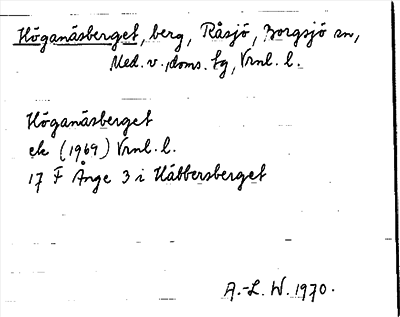 Höganäsberget, berg, Råsjö, Borgsjö sn,
Med. v. doms. tg, Vrnl. l.
Höganäsberget
ek (1969) Vrnl. l.
17 F Ånge 3 i Häbbersberget
A.-L. W. 1970.